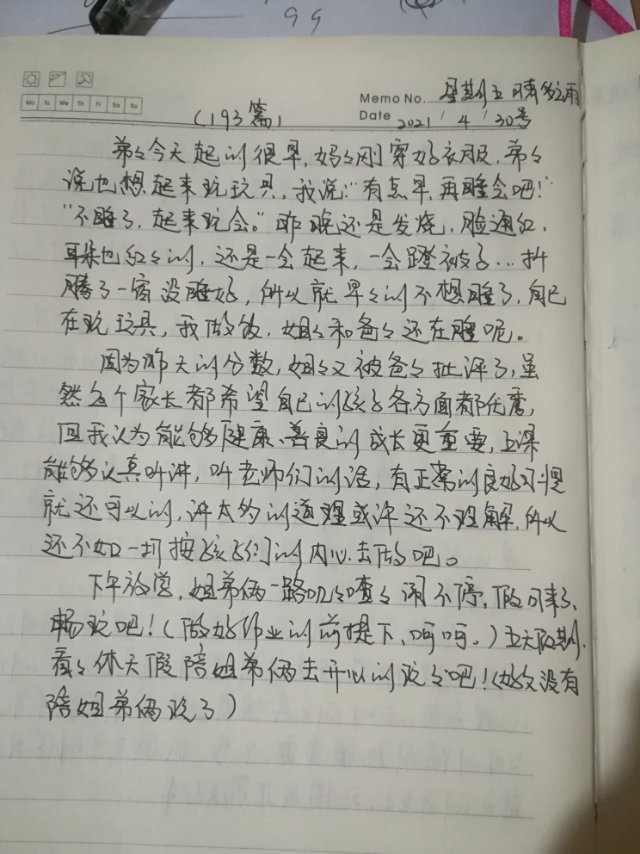 99
Mo Tu We Th Fr Sa Su
Memo No. 星期五 晴多云雨
Date 2021 / 4 / 30号
（193篇）
弟々今天起的很早，妈々刚穿好衣服，弟々
说也想起来玩玩具，我说："有点早，再睡会吧！"
"不睡了，起来玩会。"昨晚还是发烧，脸通红，
耳朵也红々的，还是一会起来，一会蹬被子…折
腾了一宿没睡好，所以就早々的不想睡了，自己
在玩玩具，我做饭，姐々和爸々还在睡呢。
因为昨天的分数，姐々又被爸々批评了，虽
然每个家长都希望自己的孩子各方面都优秀，
但我认为能够健康、善良的成长更重要，上课
能够认真听讲，听老师们的话，有正常的良好习惯
就还可以的，讲太多的道理或许还不理解，所以
还不如一切按孩子们的内心去做吧。
下午放学，姐弟俩一路叽々喳々闹不停，假日来了，
畅玩吧！（做好作业的前提下，呵呵。）五天假期，
看々休天假陪姐弟俩去开心的玩々吧！（好久没有
陪姐弟俩玩了）